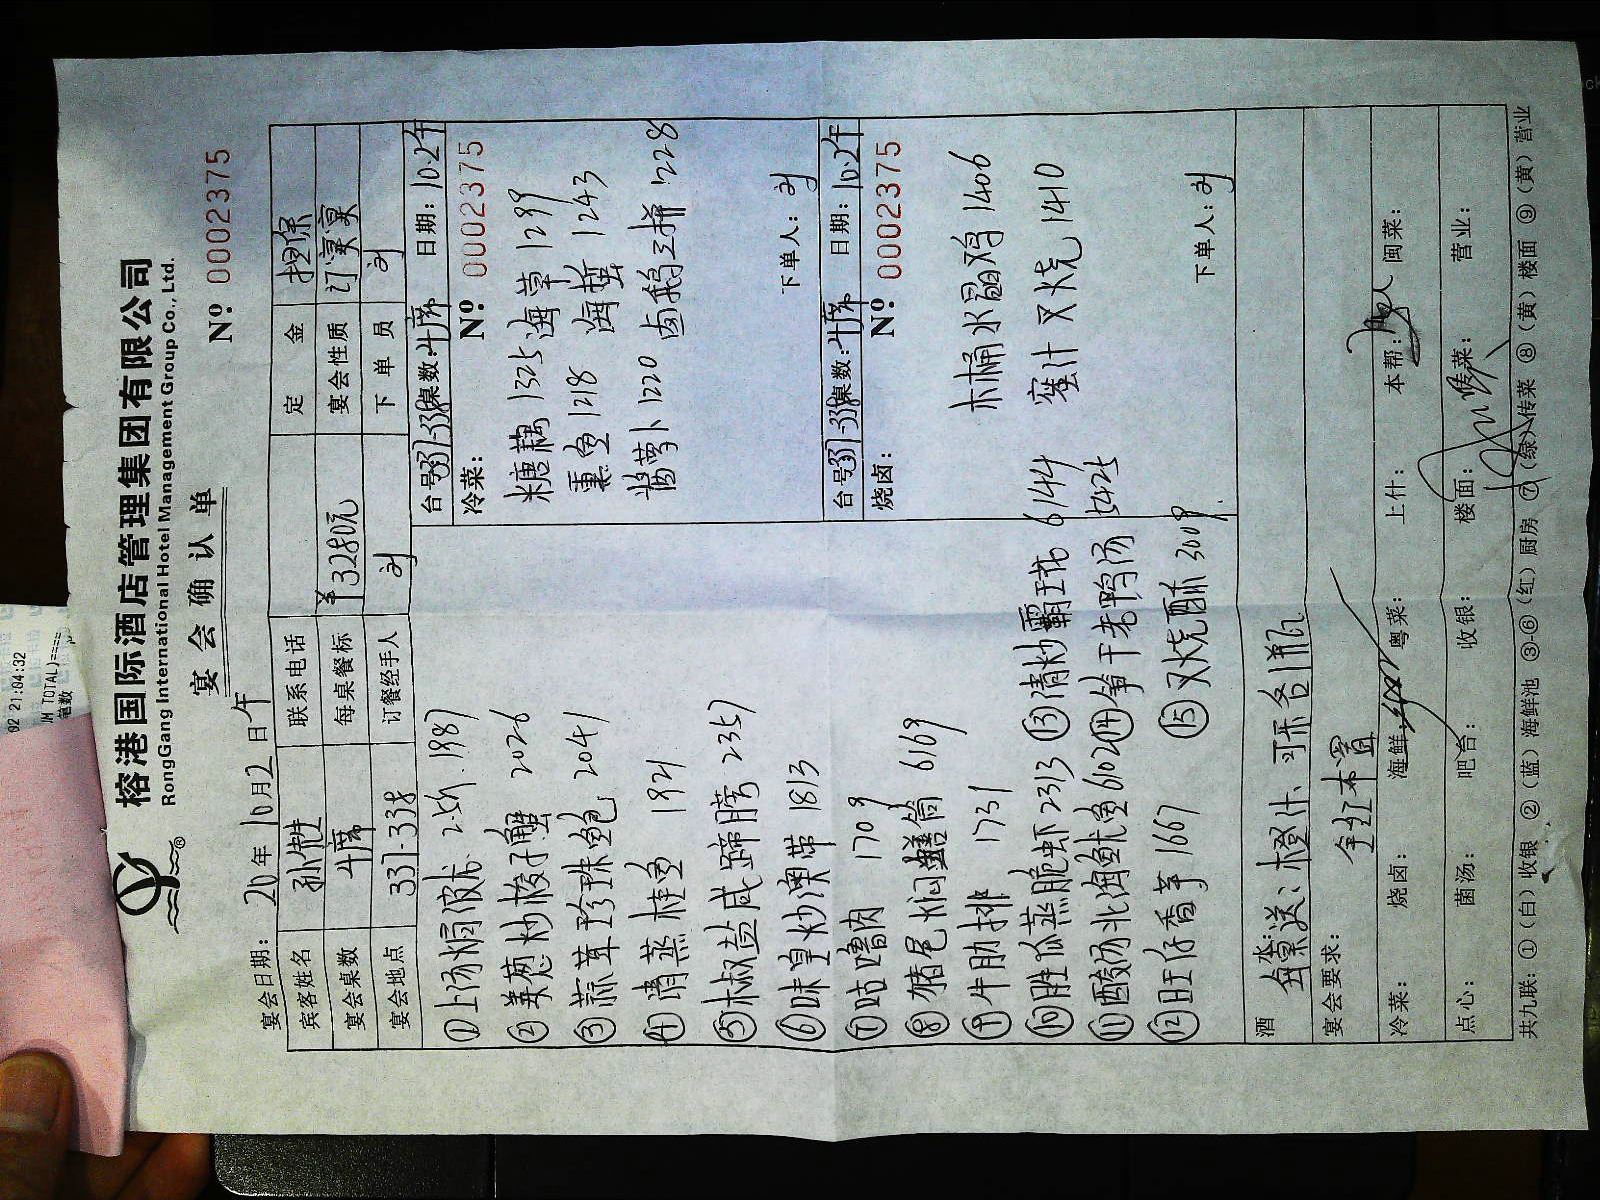 榕港国际酒店管理集团有限公司
RongGang International Hotel Management Group Co., Ltd.
宴会确认单
Nº 0002375
宴会日期: 20 年 10 月 2 日 午
宾客姓名 联系电话 定金 担保
宴会桌数 4席 每桌餐标 ¥3280元 宴会性质 订
宴会地点 337-338 订餐经手人 刘 下单员 刘
①上汤焗波龙 2.5斤 1987
②姜葱炒梭子蟹 2026
③蒜茸珍珠鲍 2041
④清蒸桂鱼 1921
⑤椒盐咸蹄膀 2357
⑥味皇炒澳带 1813
⑦咕噜肉 1709
⑧猪尾焖鳝筒 6169
⑨牛肋排 1731
⑩胜瓜蒸脆虾 2313
⑪酸汤北海鱿鱼 6102
⑫旺仔香芋 1667
⑬清炒霸王花 6144
⑭笋干老鸭汤 5425
⑮叉烧酥 3009
台号:337-338 桌数:4席 日期:10.2午
冷菜: Nº: 0002375
糖藕 1325 海草 1299
熏鱼 1218 海蜇 1243
酱萝卜 1220 卤鹅三拼 1228
下单人: 刘
台号:337-338 桌数:4席 日期:10.2午
烧卤: Nº: 0002375
木桶水晶鸡 1406
蜜汁叉烧 1410
下单人: 刘
酒水:
每桌送:橙汁、可乐各1瓶
宴会要求:
全红布置
冷菜: 烧卤: 海鲜: 粤菜: 上什: 本帮: 闽菜:
点心: 菌汤: 吧台: 收银: 楼面: 传菜: 营业:
共九联: ①(白)收银 ②(蓝)海鲜池 ③-⑥(红)厨房 ⑦(绿)传菜 ⑧(黄)楼面 ⑨(黄)营业
02 21:04:32
UM TOTAL)====
笔数